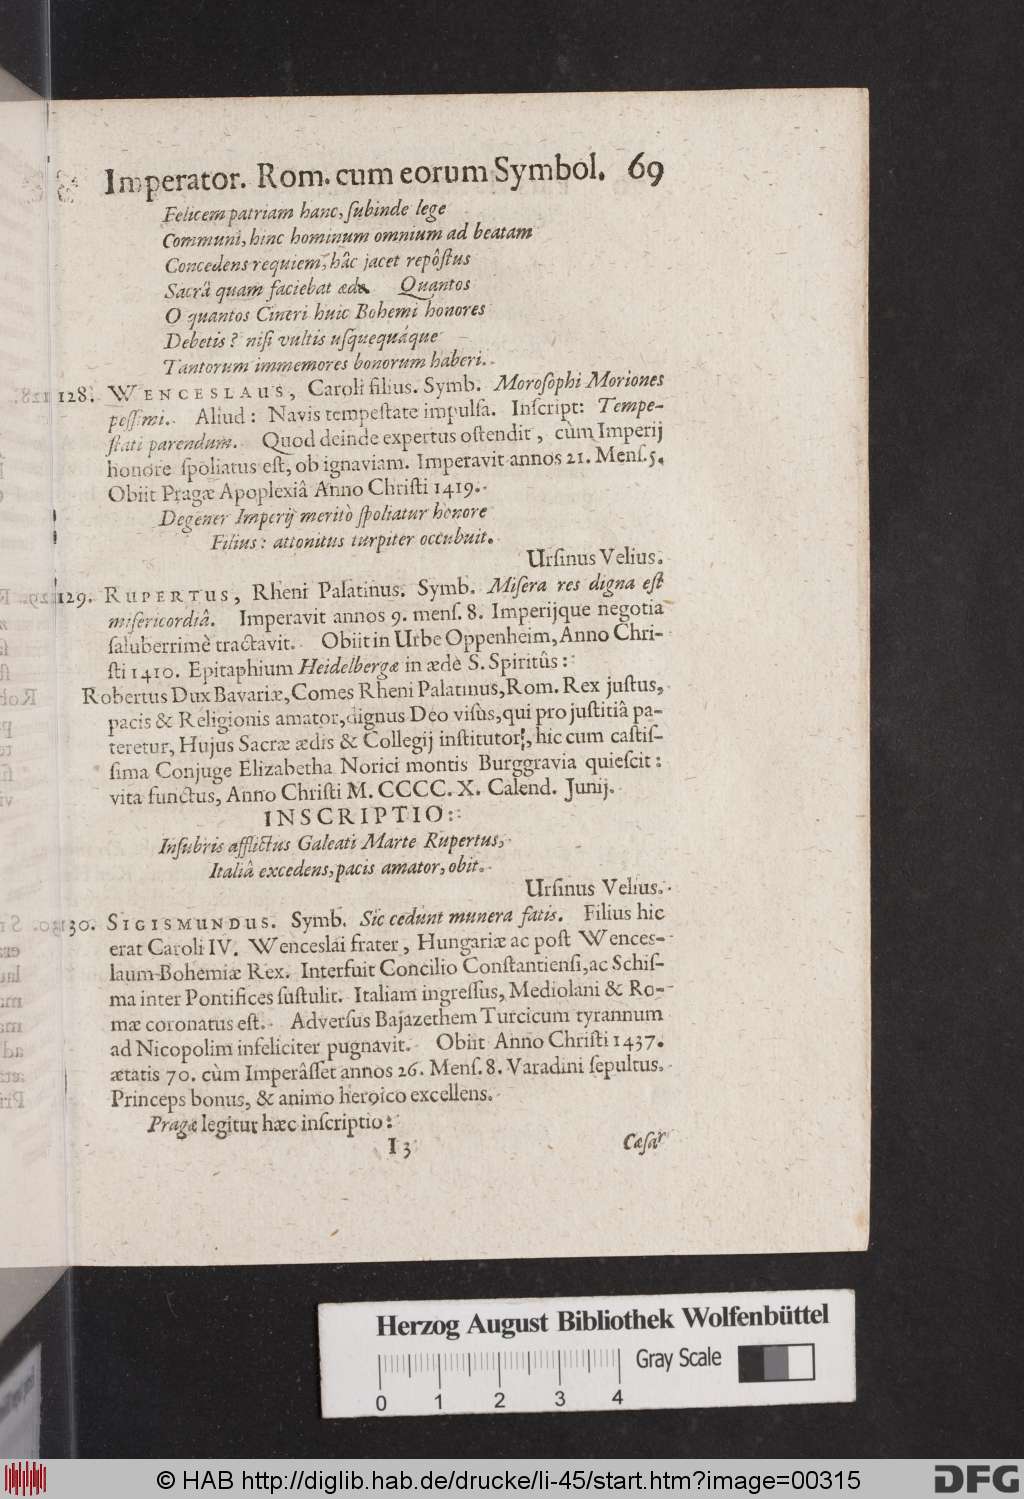 Imperator. Rom. cum eorum Symbol. 69
Felicem patriam hanc, ſubinde lege
Communi, hinc hominum omnium ad beatam
Concedens requiem, hâc jacet repôſtus
Sacrâ quam faciebat æde. Quantos
O quantos Cineri huic Bohemi honores
Debetis? niſi vultis uſquequáque
Tantorum immemores bonorum haberi.
128. WENCESLAUS, Caroli filius. Symb. Moroſophi Moriones
peſſimi. Aliud: Navis tempeſtate impulſa. Inſcript: Tempe-
ſtati parendum. Quod deinde expertus oſtendit, cùm Imperij
honore ſpoliatus eſt, ob ignaviam. Imperavit annos 21. Menſ. 5.
Obiit Pragæ Apoplexiâ Anno Chriſti 1419.
Degener Imperij meritò ſpoliatur honore
Filius: attonitus turpiter occubuit.
Urſinus Velius.
129. RUPERTUS, Rheni Palatinus. Symb. Miſera res digna eſt
miſericordiâ. Imperavit annos 9. menſ. 8. Imperijque negotia
ſaluberrimè tractavit. Obiit in Urbe Oppenheim, Anno Chri-
ſti 1410. Epitaphium Heidelbergæ in ædè S. Spiritûs:
Robertus Dux Bavariæ, Comes Rheni Palatinus, Rom. Rex juſtus,
pacis & Religionis amator, dignus Deo viſùs, qui pro juſtitiâ pa-
teretur, Hujus Sacræ ædis & Collegij inſtitutor, hic cum caſtiſ-
ſima Conjuge Elizabetha Norici montis Burggravia quieſcit:
vita functus, Anno Chriſti M. CCCC. X. Calend. Junij.
INSCRIPTIO:
Inſubris afflictus Galeati Marte Rupertus,
Italiâ excedens, pacis amator, obit.
Urſinus Velius.
130. SIGISMUNDUS. Symb. Sic cedunt munera fatis. Filius hic
erat Caroli IV. Wenceslai frater, Hungariæ ac poſt Wences-
laum Bohemiæ Rex. Interfuit Concilio Conſtantienſi, ac Schiſ-
ma inter Pontifices ſuſtulit. Italiam ingreſſus, Mediolani & Ro-
mæ coronatus eſt. Adverſus Bajazethem Turcicum tyrannum
ad Nicopolim infeliciter pugnavit. Obiit Anno Chriſti 1437.
ætatis 70. cùm Imperâſſet annos 26. Menſ. 8. Varadini ſepultus.
Princeps bonus, & animo heroico excellens.
Pragæ legitur hæc inſcriptio:
I 3 Cæſar
Herzog August Bibliothek Wolfenbüttel
Gray Scale
0 1 2 3 4
© HAB http://diglib.hab.de/drucke/li-45/start.htm?image=00315
DFG